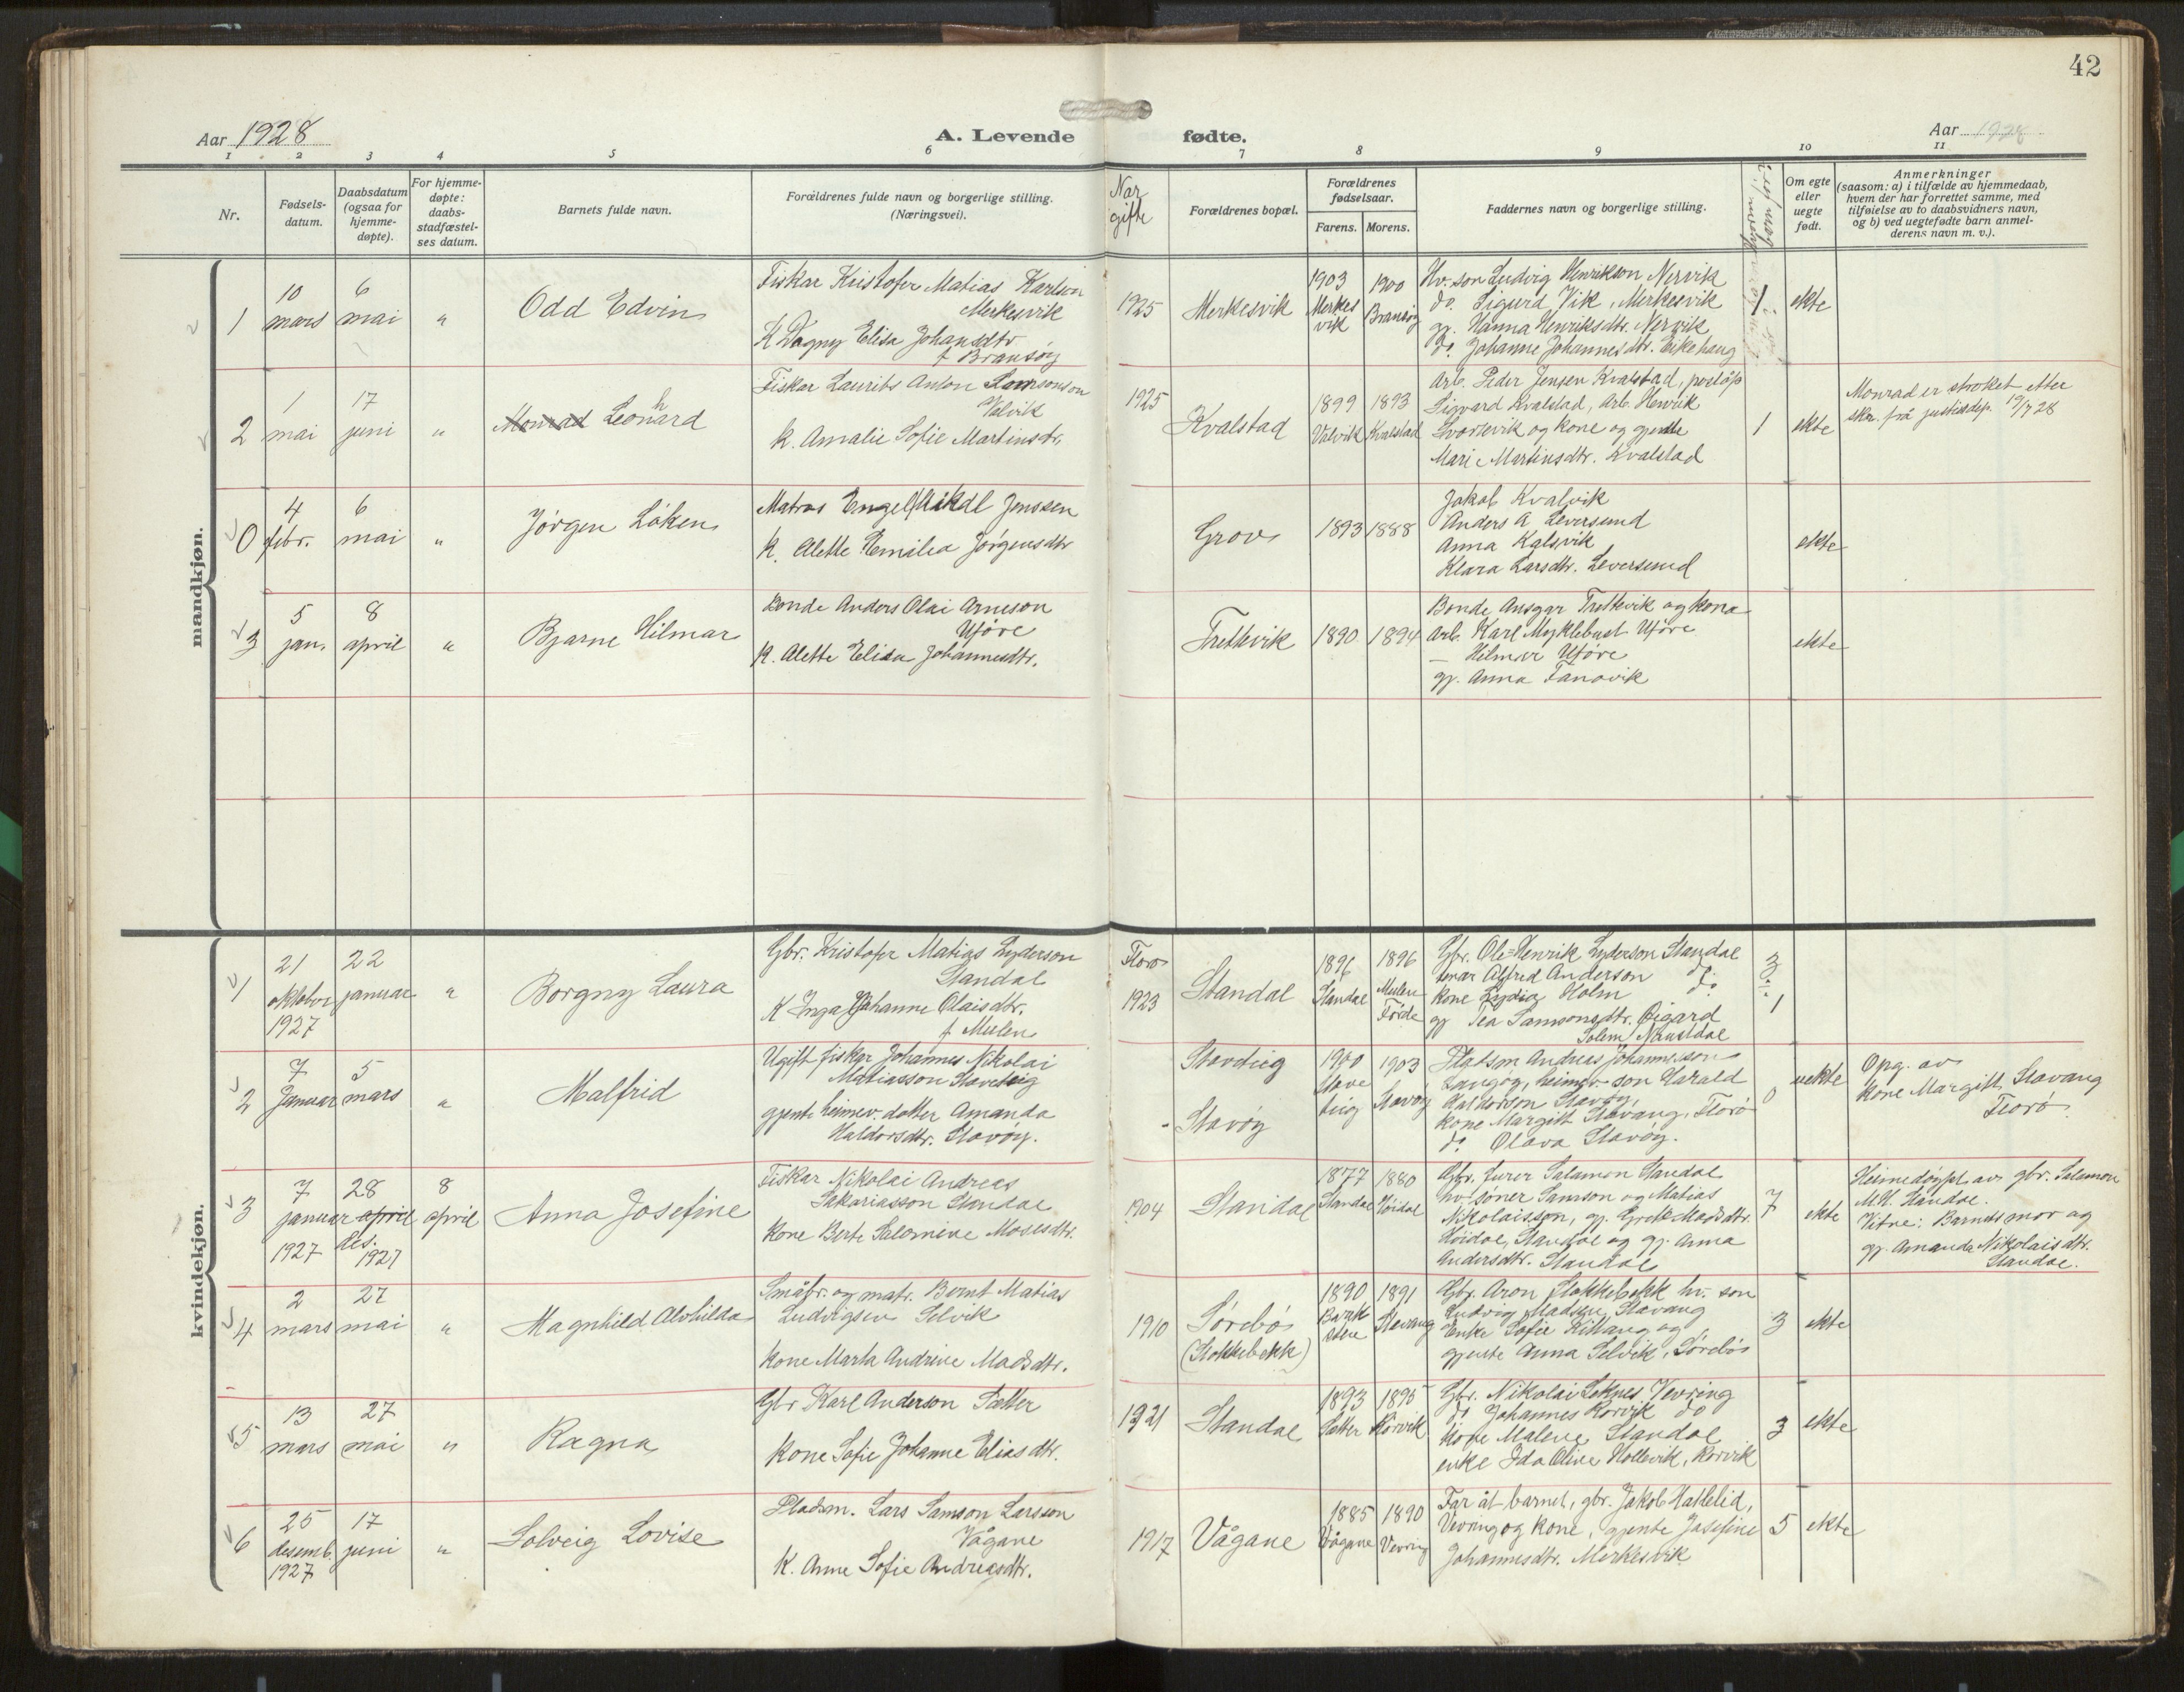 42
Aar 1928
A. Levende fødte.
Aar 1928
1 2 3 4 5 6 7 8 9 10 11
Nr.
Fødsels-
datum.
Daabsdatum
(ogsaa for
hjemme-
døpte).
For hjemme-
døpte:
daabs-
stadfæstel-
ses datum.
Barnets fulde navn.
Forældrenes fulde navn og borgerlige stilling.
(Næringsvei).
Nar
gifte
Forældrenes bopæl.
Forældrenes
fødselsaar.
Farens. Morens.
Faddernes navn og borgerlige stilling.
Om egte
eller
uegte
født.
Anmerkninger
(saasom: a) i tilfælde av hjemmedaab,
hvem der har forrettet samme, med
tilføielse av to daabsvidners navn,
og b) ved uegtefødte barn anmel-
derens navn m. v.).
mandkjøn.
1
10
mars
6
mai
"
Odd Edvin
Fiskar Kristofer Matias Karlson
Merkesvik
K Dagny Elisa Johansdtr
f Bransöy
1925
Merkesvik
1903
Merkes
vik
1900
Bransöy
Hv. son Ludvig Henrikson Nervik
do. Sigurd Vik, Merkesvik
gj. Hanna Henriksdtr. Nervik
do. Johanne Johannesdtr. Eikehaug
1
ekte
2
1
mai
17
juni
"
Monrad Leonhard
Fiskar Laurits Anton Samsonson
Valvik
K. Amalie Sofie Martinsdtr.
1925
Kvalstad
1899
Valvik
1893
Kvalstad
Arb. Peder Jensen Kvalstad, postöp
Sigvard Kvalstad, Arb. Henrik
Svortevik og kone og gjente
Marie Martinsdtr. Kvalstad
1
ekte
Monrad er stroket etter
skr. frå justisdep. 19/7 28
0
4
febr.
6
mai
"
Jörgen Löken
Matros Engelhart Jenssen
K. Alette Emilea Jörgensdtr
Grov
1893
1888
Jakob Kvalvik
Anders A Leversund
Anna Kalsvik
Klara Larsdtr. Leversund
ekte
3
5
jan.
8
april
"
Bjarne Hilmar
Bonde Anders Olai Arneson
Uföre
K. Alette Elisa Johannesdtr.
Trettevik
1890
1894
Bonde Ansgar Trettevik og kona
Arb. Karl Myklebust Uföre
— Hilmer Uföre
gj. Anna Fanavik
ekte
kvindekjøn.
1
21
oktober
1927
22
januar
"
Borgny Laura
Gbr. Kristofer Matias Lyderson
Standal
K Inga Johanne Olaisdtr.
f Mulen
Florø
1923
Standal
1896
Standal
1896
Mulen
Förde
Gbr. Ole-Henrik Lyderson Standal
Alfred Anderson do.
Kone Lydia Holm do.
gj Tea Samsonsdtr. Öigard
Solem, Naustdal
3
1
2
7
Januar
5
mars
"
Malfrid
Ugift fiskar Johannes Nikolai
Matiasson Stavdeig
gjente heimev. dotter Amanda
Haldorsdtr. Stavöy.
Stavdeig
- Stavöy
1900
1903
Stavöy
Flatsm Andreas Johannesson
Langöy, heimev. son Harald
Haldorson Stavöy,
Kone Margitt Stavang, Florö
do. Olava Stavöy.
0
uekte
Opg. av
Kone Margitt Stavang
Florö.
3
7
januar
1927
28
april
des.
1927
8
april
Anna Josefine
Fiskar Nikolai Andreas
Sakariasson Standal
Kone Berte Salomine Mosesdtr.
1904
Standal
1877
Standal
1880
Höidal
Gbr. Jurer Salamon Standal
hv. söner Samson og Matias
Nikolaisson, gj. Grete Madsdtr.
Höidal, Standal og gj. Anna
Andersdtr. Standal
7
ekte
Heimedöypt av gbr. Salamon
M.K. Standal.
Vitne: Barnds mor og
gj. Amanda Nikolaisdtr.
Standal.
4
2
mars
27
mai
"
Magnhild Alvhilda
Småbr. og matr. Bernt Matias
Ludvigsen Selvik
Kone Marta Andrine Madsdtr.
1910
Sörebö
(Stokkebekk)
1890
1891
Stavang
Gbr. Aron Stokkebekk hv. son
Ludvig Madsen Stavang
Enke Sofie Killang og
gjente Anna Selvik, Sörebö
3
ekte
5
13
mars
27
mai
"
Ragna
Gbr Karl Anderson Sætter
Kone Sofie Johanne Eliasdtr.
1921
Standal
1893
Sætter
1895
Rörvik
Gbr. Nikolai Loknes Vevring
do Johannes Rörvik do
Kone Malene Standal
enke Ida Oline Hollevik, Rörvik
3
ekte
6
25
desemb.
1927
17
juni
"
Solveig Lovise
Pladsm. Lars Samson Larsson
Vågane
K. Anne Sofie Andreasdtr.
1917
Vågane
1885
Vågane
1890
Vevring
Far åt barnet, gbr. Jakob Hatlelid,
Vevring og kone, gjente Josefine
Johannesdtr. Merkesvik
5
ekte